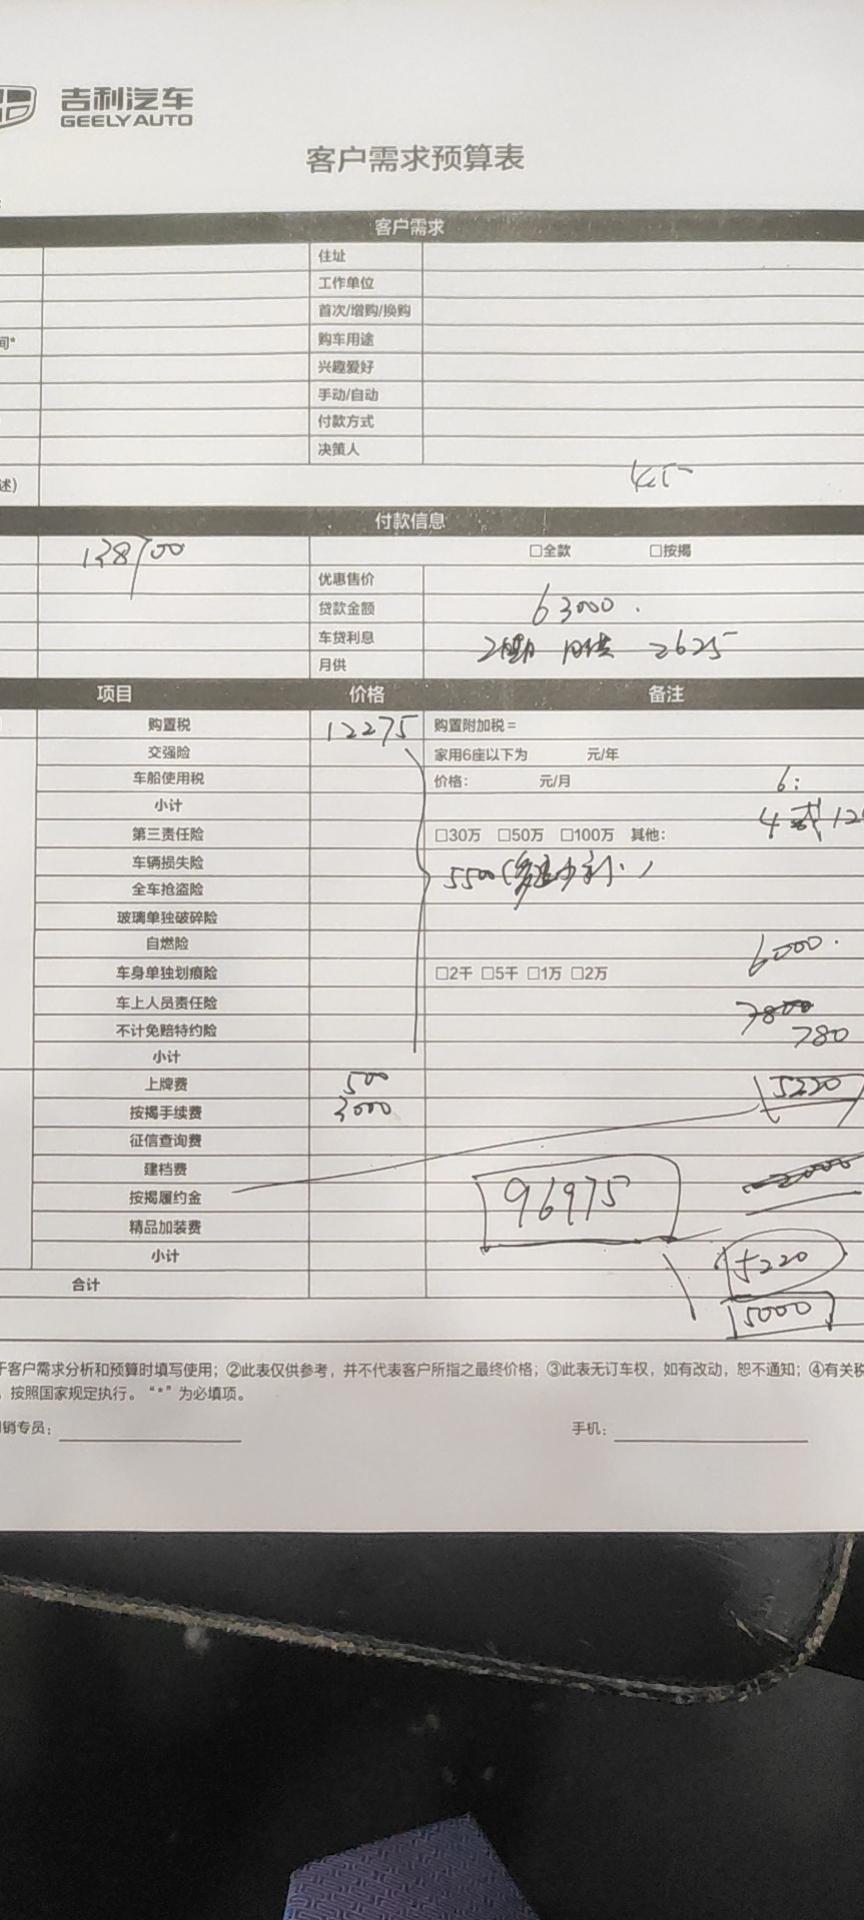 吉利汽车
GEELY AUTO
客户需求预算表
客户需求
住址
工作单位
首次/增购/换购
间*
购车用途
兴趣爱好
手动/自动
付款方式
决策人
述)
付款信息
138700
□全款 □按揭
优惠售价
贷款金额 63000.
车贷利息 月供 2625
月供
项目 价格 备注
购置税 12275 购置附加税=
交强险 家用6座以下为 元/年
车船使用税 价格: 元/月 6:
小计
4 或 12
第三责任险 □30万 □50万 □100万 其他:
车辆损失险 5500(多退少补.)
全车抢盗险
玻璃单独破碎险
自燃险 6000.
车身单独划痕险 □2千 □5千 □1万 □2万
车上人员责任险 7800
不计免赔特约险 780
小计
上牌费 500 5220
按揭手续费 3000
征信查询费
建档费 2000
按揭履约金 96975
精品加装费
小计 5220
合计 5000
于客户需求分析和预算时填写使用；②此表仅供参考，并不代表客户所指之最终价格；③此表无订车权，如有改动，恕不通知；④有关税
，按照国家规定执行。“*”为必填项。
销专员: 手机: